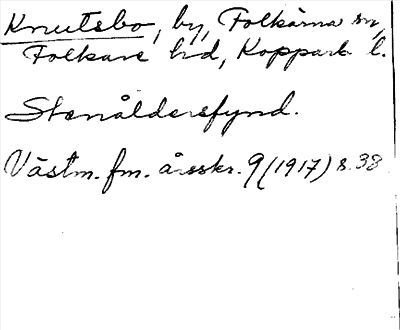 Knutsbo, by, Folkärna sn,
Folkare hd, Kopparb l.
Stenåldersfynd.
Västm. fm. årsskr. 9 (1917) s. 38